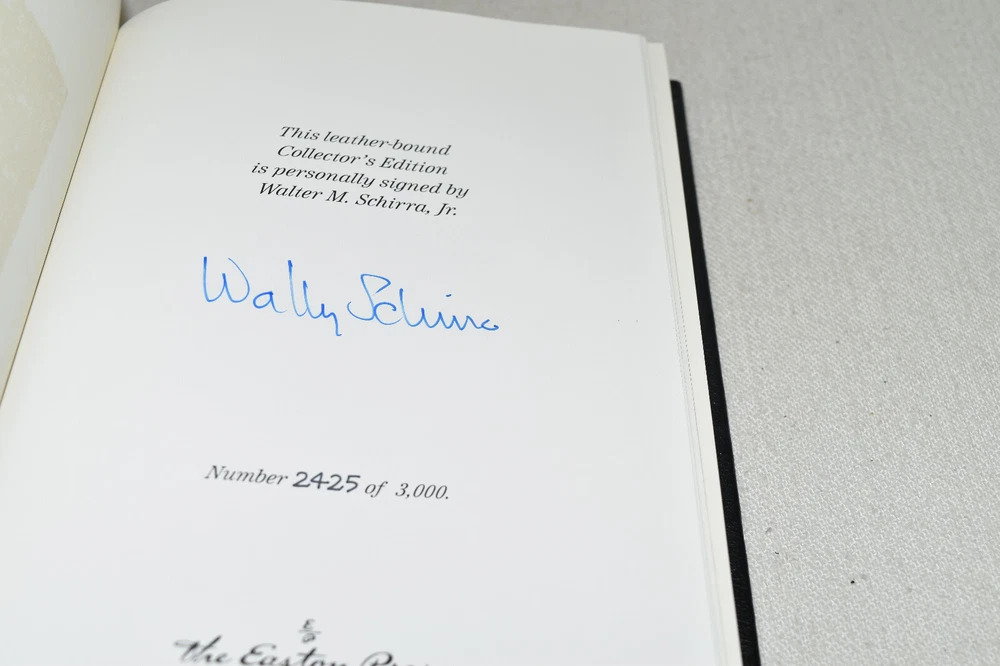 This leather-bound
Collector's Edition
is personally signed by
Walter M. Schirra, Jr.
Wally Schirra
Number 2425 of 3,000.
E/P
The Easton Press